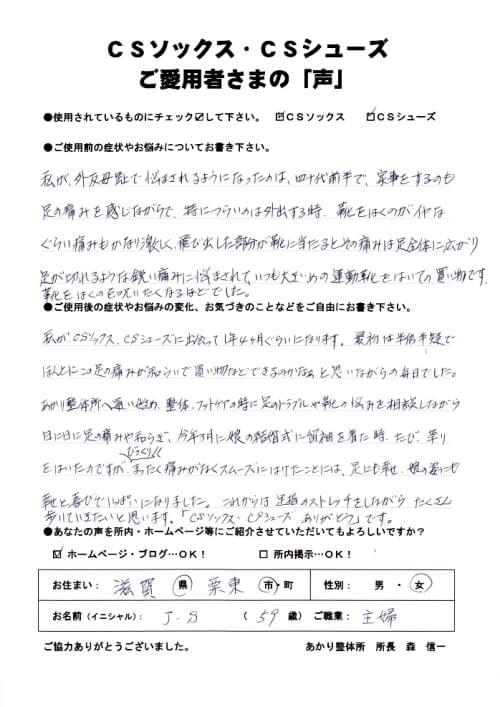 CSソックス・CSシューズ
ご愛用者さまの「声」
●使用されているものにチェック☑して下さい。 ☑CSソックス ☑CSシューズ
●ご使用前の症状やお悩みについてお書き下さい。
私が、外反母趾で悩まされるようになったのは、四十代前半で、家事をするのも
足の痛みを感じながらで、特につらいのは外出する時、靴をはくのがイヤな
ぐらい痛みもかなり激しく、飛び出した部分が靴に当たるとその痛みは足全体に広がり
足が切れるような鋭い痛みに悩まされて、いつも大きいめの運動靴をはいての買い物です。
靴をはくのもの いたくなるほどでした。
●ご使用後の症状やお悩みの変化、お気づきのことなどをご自由にお書き下さい。
私がCSソックス、CSシューズに出会って1年4ヶ月ぐらいになります。最初は半信半疑で
ほんとにこの足の痛みが和らいで買い物などできるのかなぁと思いながらの毎日でした。
あかり整体所へ通い始め、整体、フットケアの時に足のトラブルや靴の悩みを相談しながら
日に日に足の痛みや和らぎ、今年3月に娘の結婚式に留袖を着た時、たび、草り
をはいたのですが、びっくり!!まったく痛みがなくスムーズにはけたことには、足にも幸せ、娘の姿にも
幸せと喜びでいっぱいになりました。これからは足指のストレッチをしながら たくさん
歩いていきたいと思います。「CSソックス・CSシューズ ありがとう」です。
●あなたの声を所内・ホームページ等にご紹介させていただいてもよろしいですか?
☑ ホームページ・ブログ…OK! □ 所内掲示…OK!
お住まい: 滋賀 県 栗東 市・町 性別: 男 ・ 女
お名前(イニシャル): J.S ( 59 歳) ご職業: 主婦
ご協力ありがとうございました。 あかり整体所 所長 森 信一